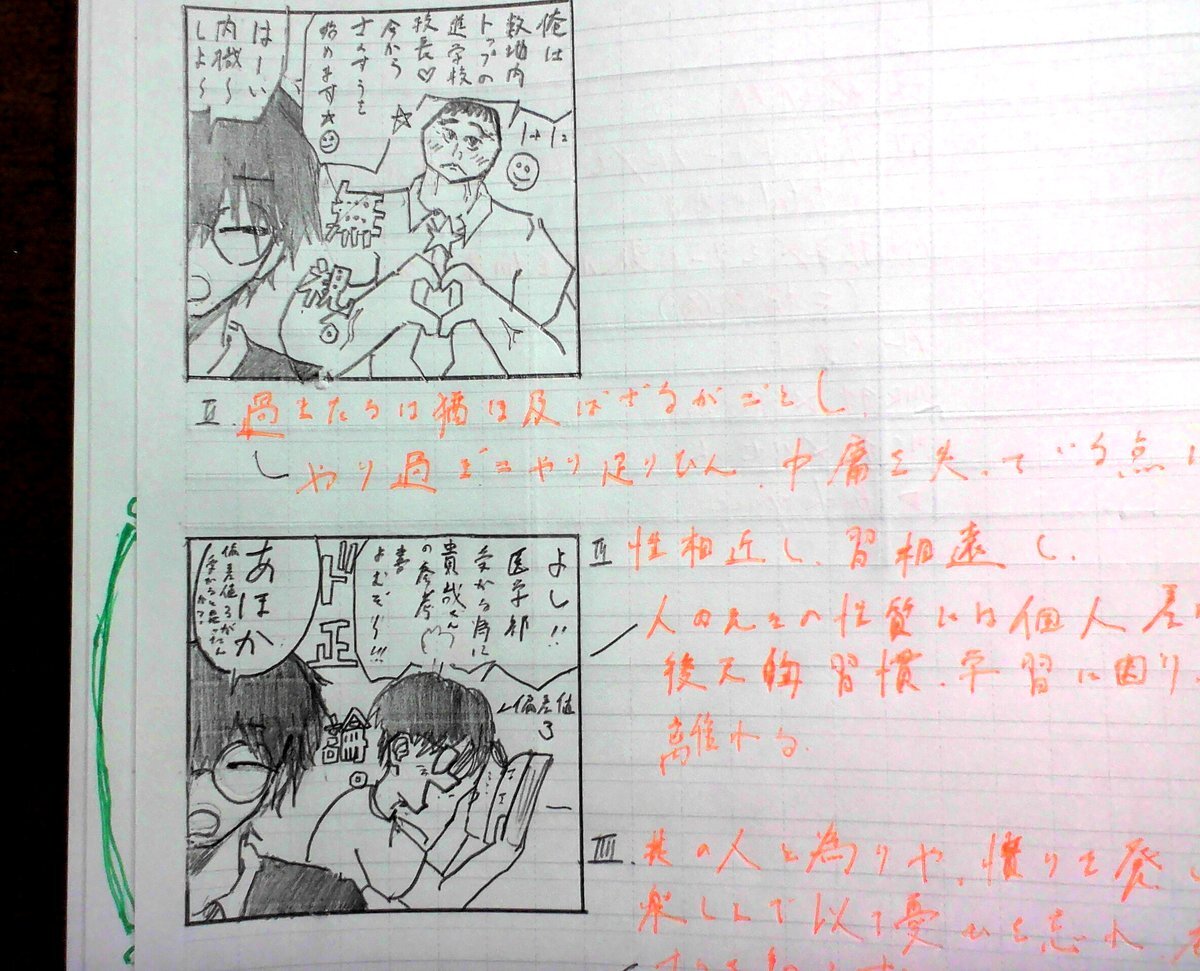 俺は
数増内
トップの
進学校
校長♡
今から
さっすうを
始めます★
はーい
内職〜
しよ〜
Ⅱ. 過ぎたるは猶ほ及ばざるがごとし.
やり過ぎ=やり足りひん. 中庸を失っている点
よし!!
医学部
受かる為に
貴哉くん
の参考
書
よむぞ〜!!!
ド正論
あほか
偏差値3がん
偏差値
3
Ⅱ 性相近し、習相遠し.
人の元々の性質には個人差
後天的習慣、学習に因り
離れる.
Ⅲ. 其の人と為りや、憤りを発し
楽しんで以て憂ひを忘れ